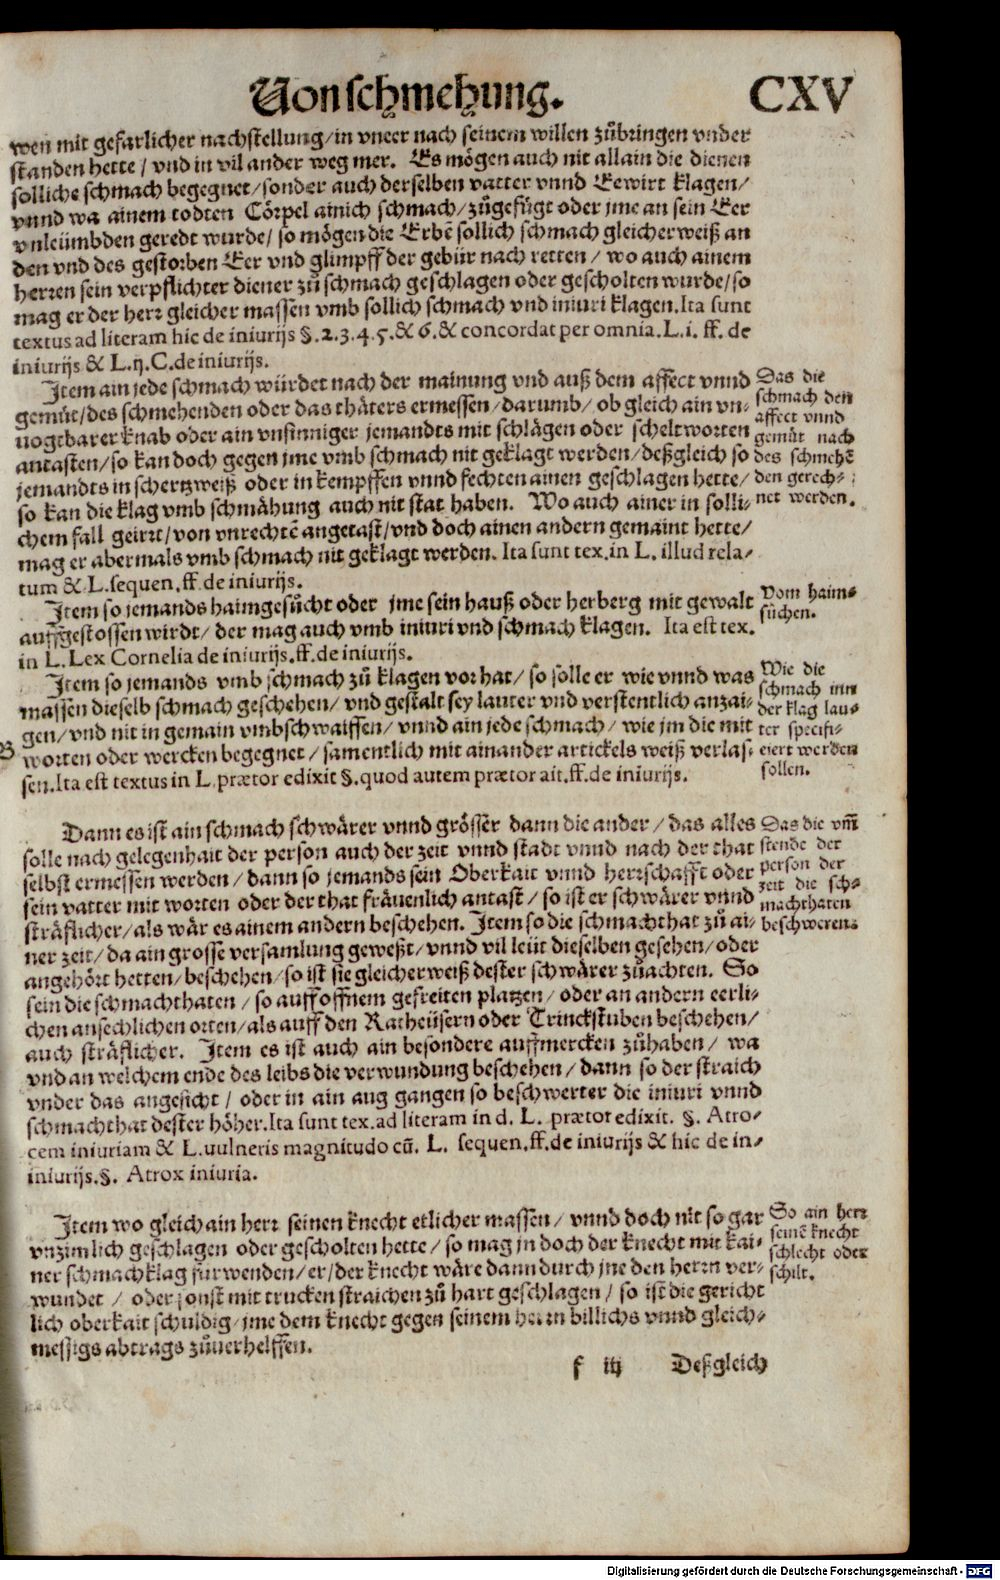 Von schmehung. CXV
wen mit gefarlicher nachstellung/in vneer nach seinem willen zůbringen vnder
standen hette/ vnd in vil ander weg mer. Es mögen auch nit allain die dienen
solliche schmach begegnet/sonder auch derselben vatter vnnd Eewirt klagen/
vnnd wa ainem todten Cörpel ainich schmach/zůgefügt oder jme an sein Eer
vnleümbden geredt wurde/ so mögen die Erbē sollich schmach gleicherweiß an
den vnd des gestorben Eer vnd glimpff der gebür nach retten/ wo auch ainem
herren sein verpflichter diener zů schmach geschlagen oder gescholten wurde/so
mag er der herr gleicher massen vmb sollich schmach vnd iniuri klagen. Ita sunt
textus ad literam hic de iniurijs §.2.3.4.5.& 6.& concordat per omnia.L.i.ff.de
iniurijs & L.ij.C.de iniurijs.
Item ain jede schmach würdet nach der mainung vnd auß dem affect vnnd
gemüt/des schmehenden oder das thäters ermessen/darumb/ob gleich ain vn-
uogtbarer knab oder ain vnsinniger jemandts mit schlägen oder scheltworten
antasten/so kan doch gegen jme vmb schmach nit geklagt werden/deßgleich so
jemandts in schertzweiß oder in kempffen vnnd fechten ainen geschlagen hette/
so kan die klag vmb schmähung auch nit stat haben. Wo auch ainer in solli-
chem fall geirrt/von vnrechtē angetast/vnd doch ainen andern gemaint hette/
mag er abermals vmb schmach nit geklagt werden. Ita sunt tex.in L. illud rela-
tum & L.sequen.ff.de iniurijs.
Das die
schmach den
affect vnnd
gemüt nach
des schmehē
den gerech-
net werden.
Item so jemands haimgesůcht oder jme sein hauß oder herberg mit gewalt
auffgestossen wirdt/ der mag auch vmb iniuri vnd schmach klagen. Ita est tex.
in L.Lex Cornelia de iniurijs.ff.de iniurijs.
Vom haim-
sůchen.
Item so jemands vmb schmach zů klagen vor hat/ so solle er wie vnnd was
massen dieselb schmach geschehen/ vnd gestalt sey lauter vnd verstentlich anzai-
gen/vnd nit in gemain vmbschwaiffen/ vnnd ain jede schmach/ wie jm die mit
B worten oder wercken begegnet/samentlich mit ainander artickels weiß verlas-
sen.Ita est textus in L.prætor edixit §.quod autem prætor ait.ff.de iniurijs.
Wie die
schmach inn
der klag lau-
ter specifi-
ciert werden
sollen.
Dann es ist ain schmach schwärer vnnd grösser dann die ander/das alles
solle nach gelegenhait der person auch der zeit vnnd stadt vnnd nach der that
selbst ermessen werden/dann so jemands sein Oberkait vnnd herrschafft oder
sein vatter mit worten oder der that fräuenlich antast/ so ist er schwärer vnnd
sträflicher/als wär es ainem andern beschehen. Item so die schmachthat zů ai-
ner zeit/da ain grosse versamlung geweßt/vnnd vil leüt dieselben gesehen/oder
angehört hetten/beschehen/so ist sie gleicherweiß dester schwärer zůachten. So
sein die schmachthaten/so auff offnem gefreiten platzen/ oder an andern eerli-
chen ansechlichen orten/als auff den Ratheüsern oder Trinckstuben beschehen/
auch sträflicher. Item es ist auch ain besondere auffmercken zůhaben/ wa
vnd an welchem ende des leibs die verwundung beschehen/dann so der straich
vnder das angesicht/ oder in ain aug gangen so beschwerter die iniuri vnnd
schmachthat dester höher.Ita sunt tex.ad literam in d. L. prætor edixit. §. Atro-
cem iniuriam & L.uulneris magnitudo cū. L. sequen.ff.de iniurijs & hic de in-
iniurijs.§. Atrox iniuria.
Das die vm̄
stende der
person der
zeit die sch-
machthaten
beschweren.
Item wo gleich ain herr seinen knecht etlicher massen/ vnnd doch nit so gar
vnzimlich geschlagen oder gescholten hette/ so mag jn doch der knecht mit kai-
ner schmachklag fürwenden/er/der knecht wäre dann durch jne den herrn ver-
wundet / oder sonst mit trucken straichen zů hart geschlagen/ so ist die gericht
lich oberkait schuldig/jme dem knecht gegen seinem herrn billichs vnnd gleich-
messigs abtrags zůuerhelffen.
So ain herr
seinē knecht
schlecht oder
schilt.
f iij Deßgleich
Digitalisierung gefördert durch die Deutsche Forschungsgemeinschaft - DFG